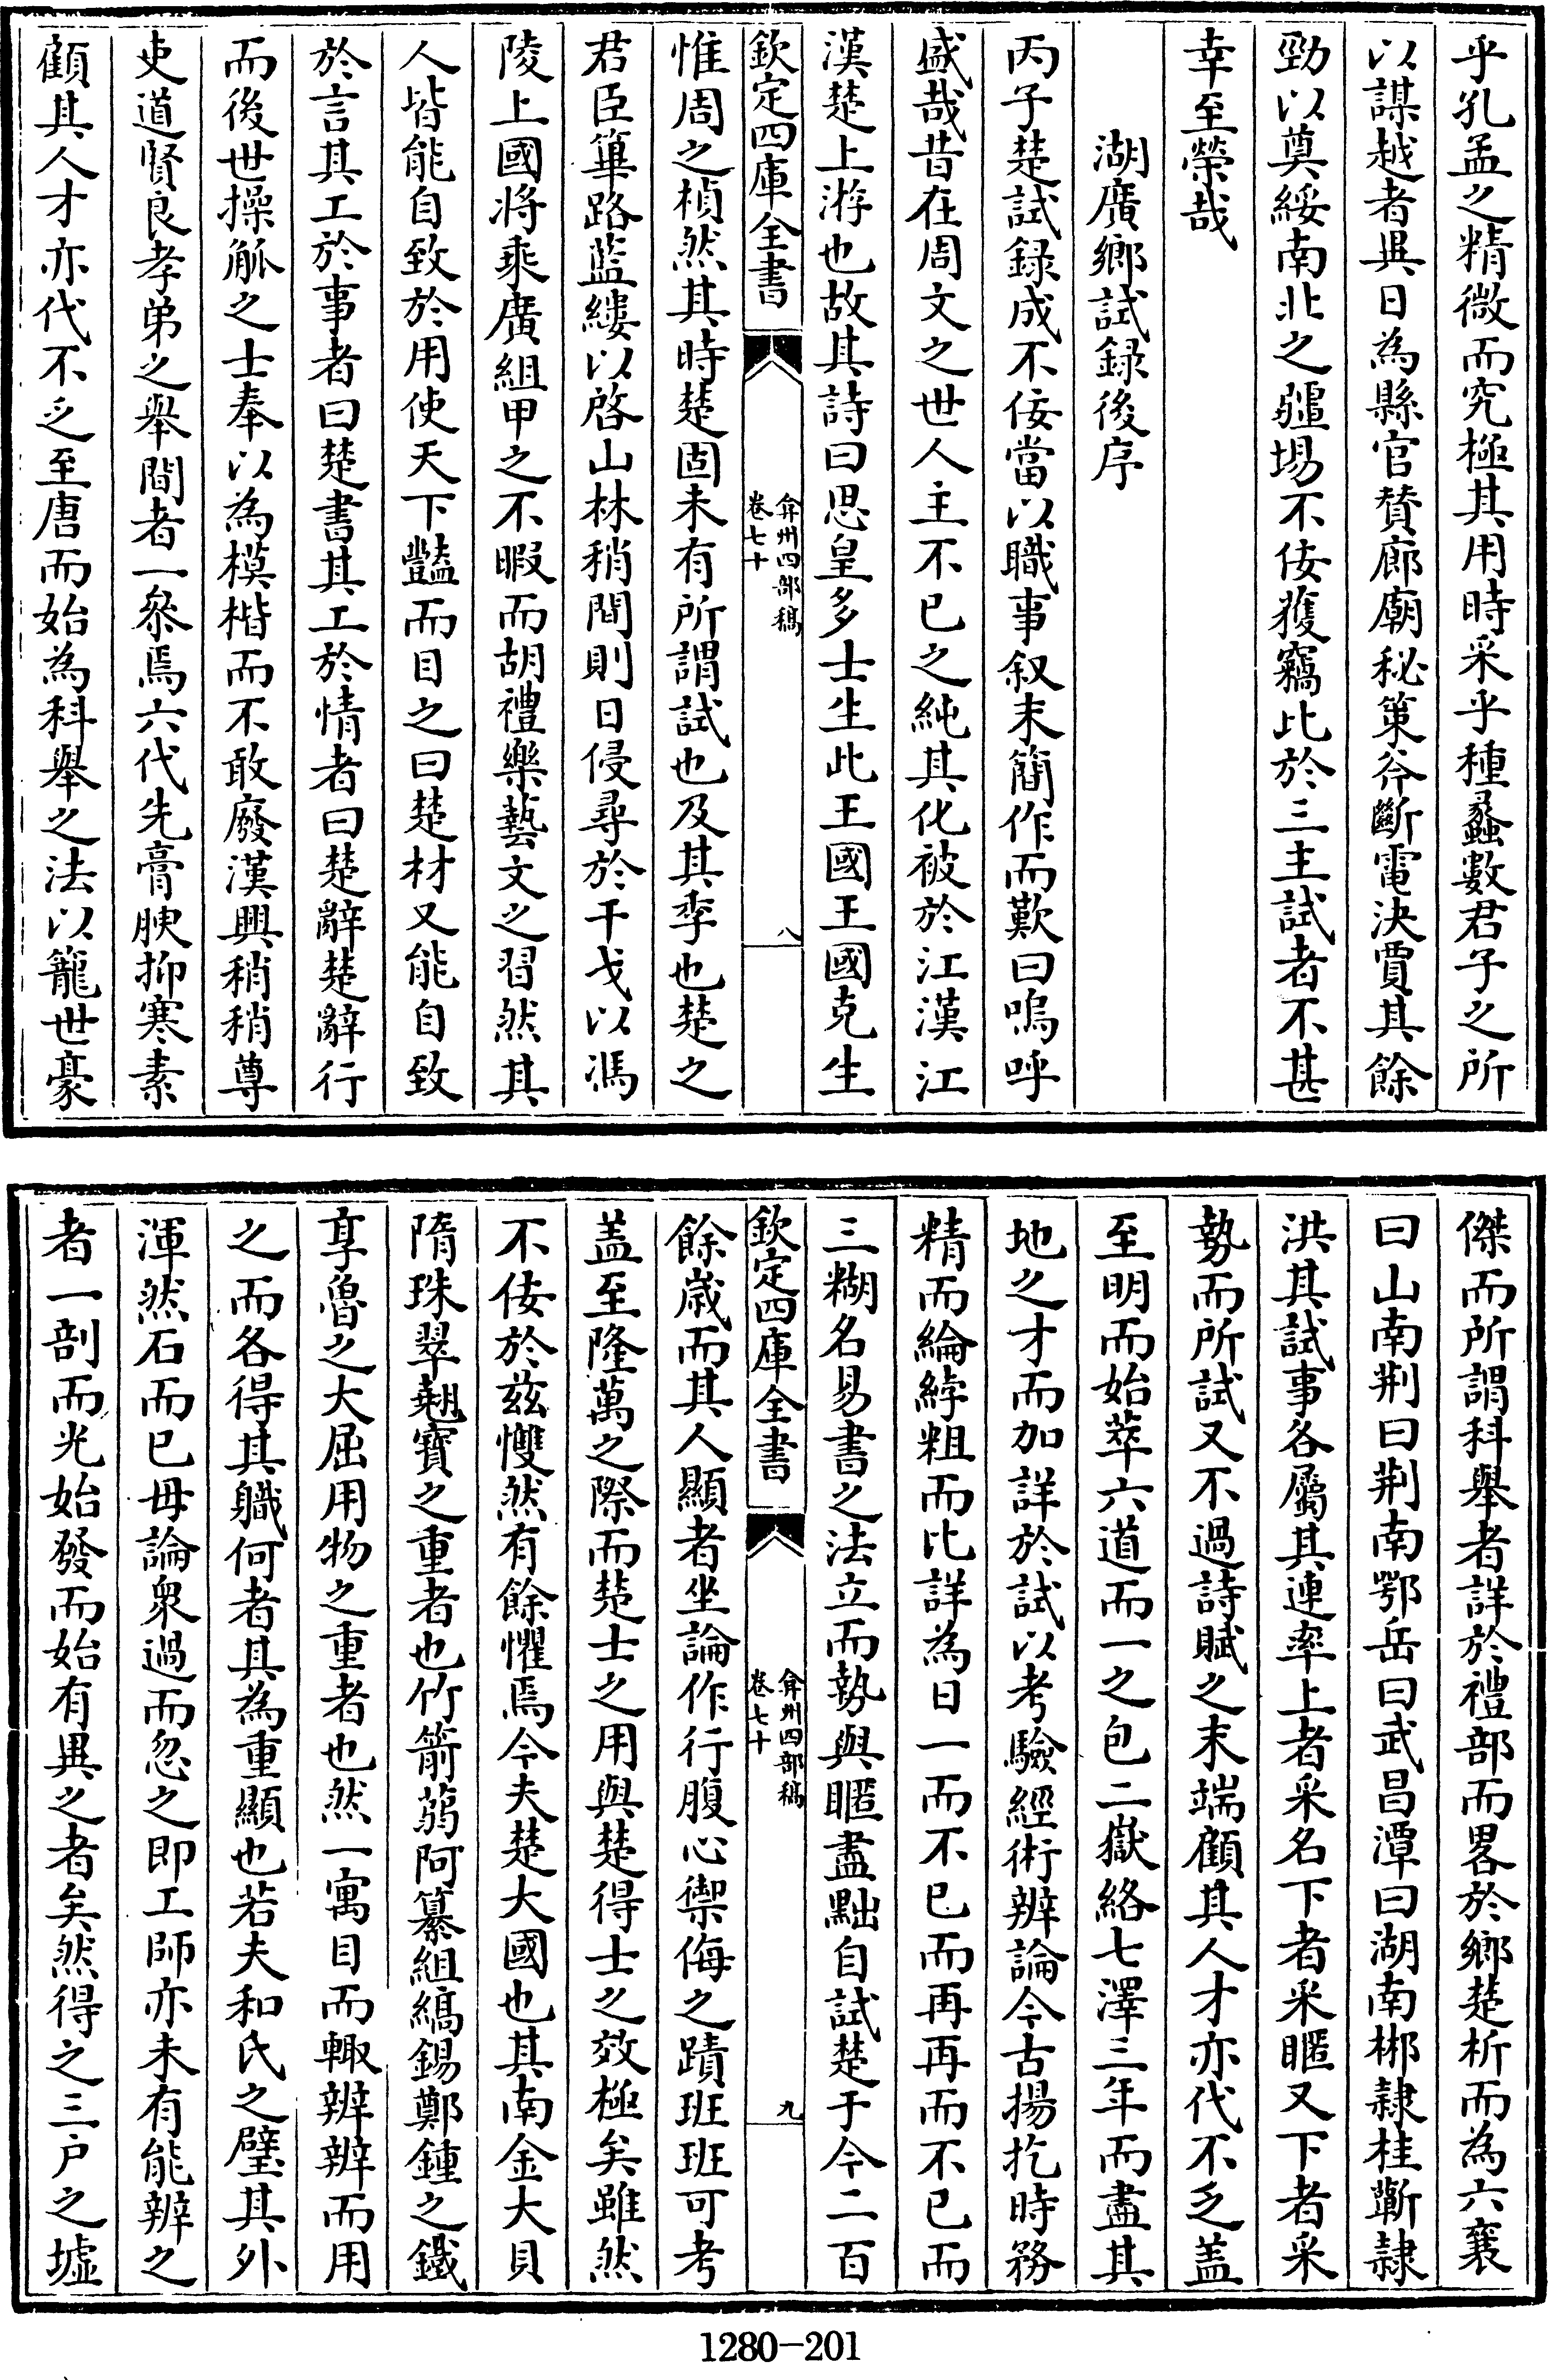 乎孔孟之精微而究極其用時采乎種蠡數君子之所
以謀越者異日為縣官贊廊廟秘策斧斷電決賈其餘
勁以奠綏南北之疆埸不佞獲竊比於三主試者不甚
幸至榮哉
湖廣鄉試錄後序
丙子楚試錄成不佞當以職事叙末簡作而歎曰嗚呼
盛哉昔在周文之世人主不已之純其化被於江漢江
漢楚上游也故其詩曰思皇多士生此王國王國克生
欽定四庫全書
弇州四部稿
卷七十
八
惟周之楨然其時楚固未有所謂試也及其季也楚之
君臣篳路藍縷以啓山林稍間則日侵尋於干戈以馮
陵上國將乘廣組甲之不暇而胡禮樂藝文之習然其
人皆能自致於用使天下豔而目之曰楚材又能自致
於言其工於事者曰楚書其工於情者曰楚辭楚辭行
而後世操觚之士奉以為模楷而不敢廢漢興稍稍尊
吏道賢良孝弟之舉間者一叅焉六代先膏腴抑寒素
顧其人才亦代不乏至唐而始為科舉之法以籠世豪
傑而所謂科舉者詳於禮部而畧於鄉楚析而為六襄
曰山南荆曰荆南鄂岳曰武昌潭曰湖南郴隷桂蘄隷
洪其試事各屬其連率上者采名下者采暱又下者采
勢而所試又不過詩賦之末端顧其人才亦代不乏盖
至明而始萃六道而一之包二嶽絡七澤三年而盡其
地之才而加詳於試以考驗經術辨論今古揚扢時務
精而綸綍粗而比詳為日一而不已而再再而不已而
三糊名易書之法立而勢與暱盡黜自試楚于今二百
欽定四庫全書
弇州四部稿
卷七十
九
餘歲而其人顯者坐論作行腹心禦侮之蹟班班可考
盖至隆萬之際而楚士之用與楚得士之效極矣雖然
不佞於兹戄然有餘懼焉今夫楚大國也其南金大貝
隋珠翠翹寳之重者也竹箭蒻阿纂組縞錫鄭鍾之鐵
享魯之大屈用物之重者也然一寓目而輙辨辨而用
之而各得其職何者其為重顯也若夫和氏之璧其外
渾然石而已毋論衆過而忽之即工師亦未有能辨之
者一剖而光始發而始有異之者矣然得之三户之墟
1280-201